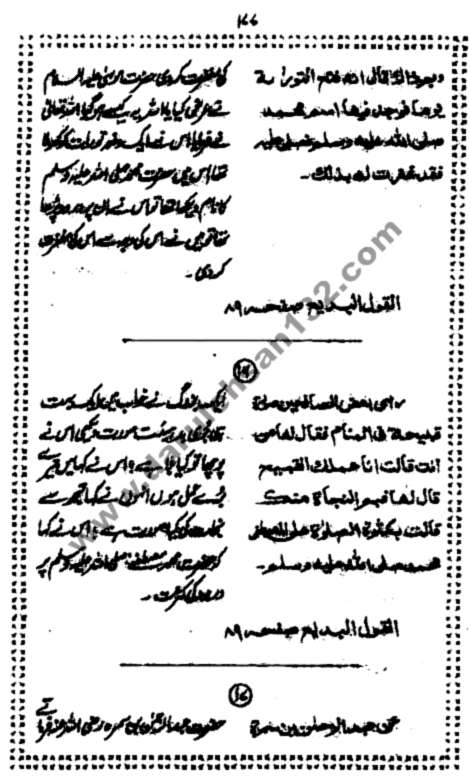 ۱۷۷
وبم ذالك قال انه فتح التوراة
يوما فوجد فيها اسم محمد
صلى الله عليه وسلم فصلى عليه
فقد غفرت له بذلك۔
کی مغفرت کر دی حضرت موسیٰ علیہ السلام
نے عرض کیا یا اللہ یہ کیسے ہو گیا اللہ تعالیٰ
نے فرمایا اس نے ایک دفعہ تورات کو کھولا
تھا اس میں حضرت محمد صلی اللہ علیہ وسلم
کا نام دیکھا تھا تو اس نے ان پر درود پڑھا
تھا تو میں نے اس کی وجہ سے اس کی مغفرت
کر دی۔
القول البدیع صفحہ ۸۹
رأى بعض الصالحين صورة
قبيحة فى المنام فقال لها من
انت قالت انا عملك القبيح
قال لها فبم النجاة منك
قالت بكثرة الصلوة على المصطفى
محمد صلى الله عليه وسلم۔
ایک بزرگ نے خواب میں ایک بہت
بری بد ہیئت صورت دیکھی اس نے
پوچھا تو کیا بلا ہے؟ اس نے کہا میں تیرے
بُرے عمل ہوں انہوں نے کہا تجھ سے
نجات کی کیا صورت ہے؟ اس نے کہا
کہ حضرت محمد مصطفیٰ صلی اللہ علیہ وسلم پر
درود کی کثرت۔
القول البدیع صفحہ ۸۹
عن عبد الرحمن بن سمرة
حضرت عبد الرحمٰن بن سمرہ رضی اللہ عنہ فرماتے
www.darulehsan132.com